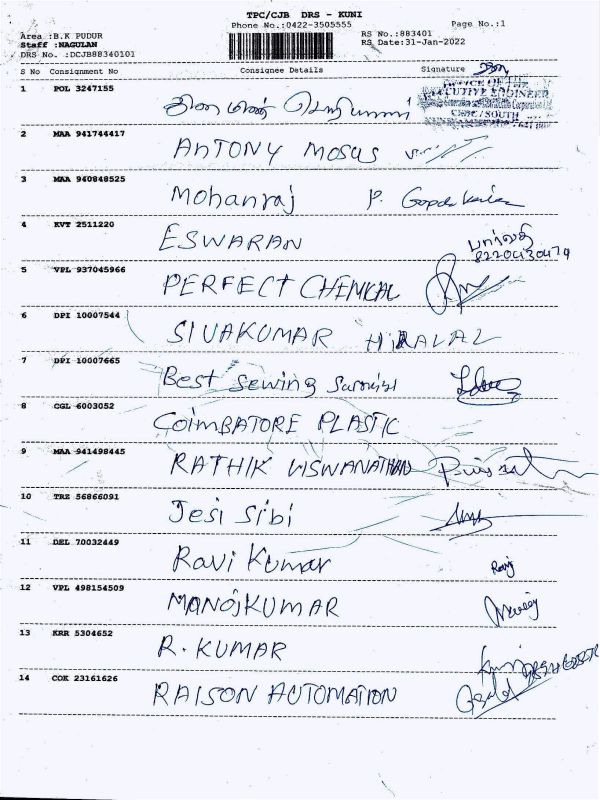 TPC/CJB DRS - KUNI
Phone No.:0422-3505555 Page No.:1
Area :B.K PUDUR RS No.:883401
Staff :NAGULAN RS Date:31-Jan-2022
DRS No. :DCJB88340101
S No Consignment No Consignee Details Signature
1 POL 3247155
OFFICE OF THE
EXECUTIVE ENGINEER
CBDC/SOUTH
2 MAA 941744417 ANTONY MOSUS
3 MAA 940848525 Mohanraj P. Gopalakrishnan
4 KVT 2511220 ESWARAN
5 VPL 937045966 PERFECT CHEMICAL
6 DPI 10007544 SIVAKUMAR HIRALAL
7 DPI 10007665 Best sewing
8 CGL 6003052 COIMBATORE PLASTIC
9 MAA 941498445 RATHIK VISWANATHAN
10 TRZ 56866091 Jesi Sibi
11 DEL 70032449 Ravi Kumar Ravi
12 VPL 498154509 MANOJKUMAR Manoj
13 KRR 5304652 R. KUMAR
14 COK 23161626 RAISON AUTOMATION